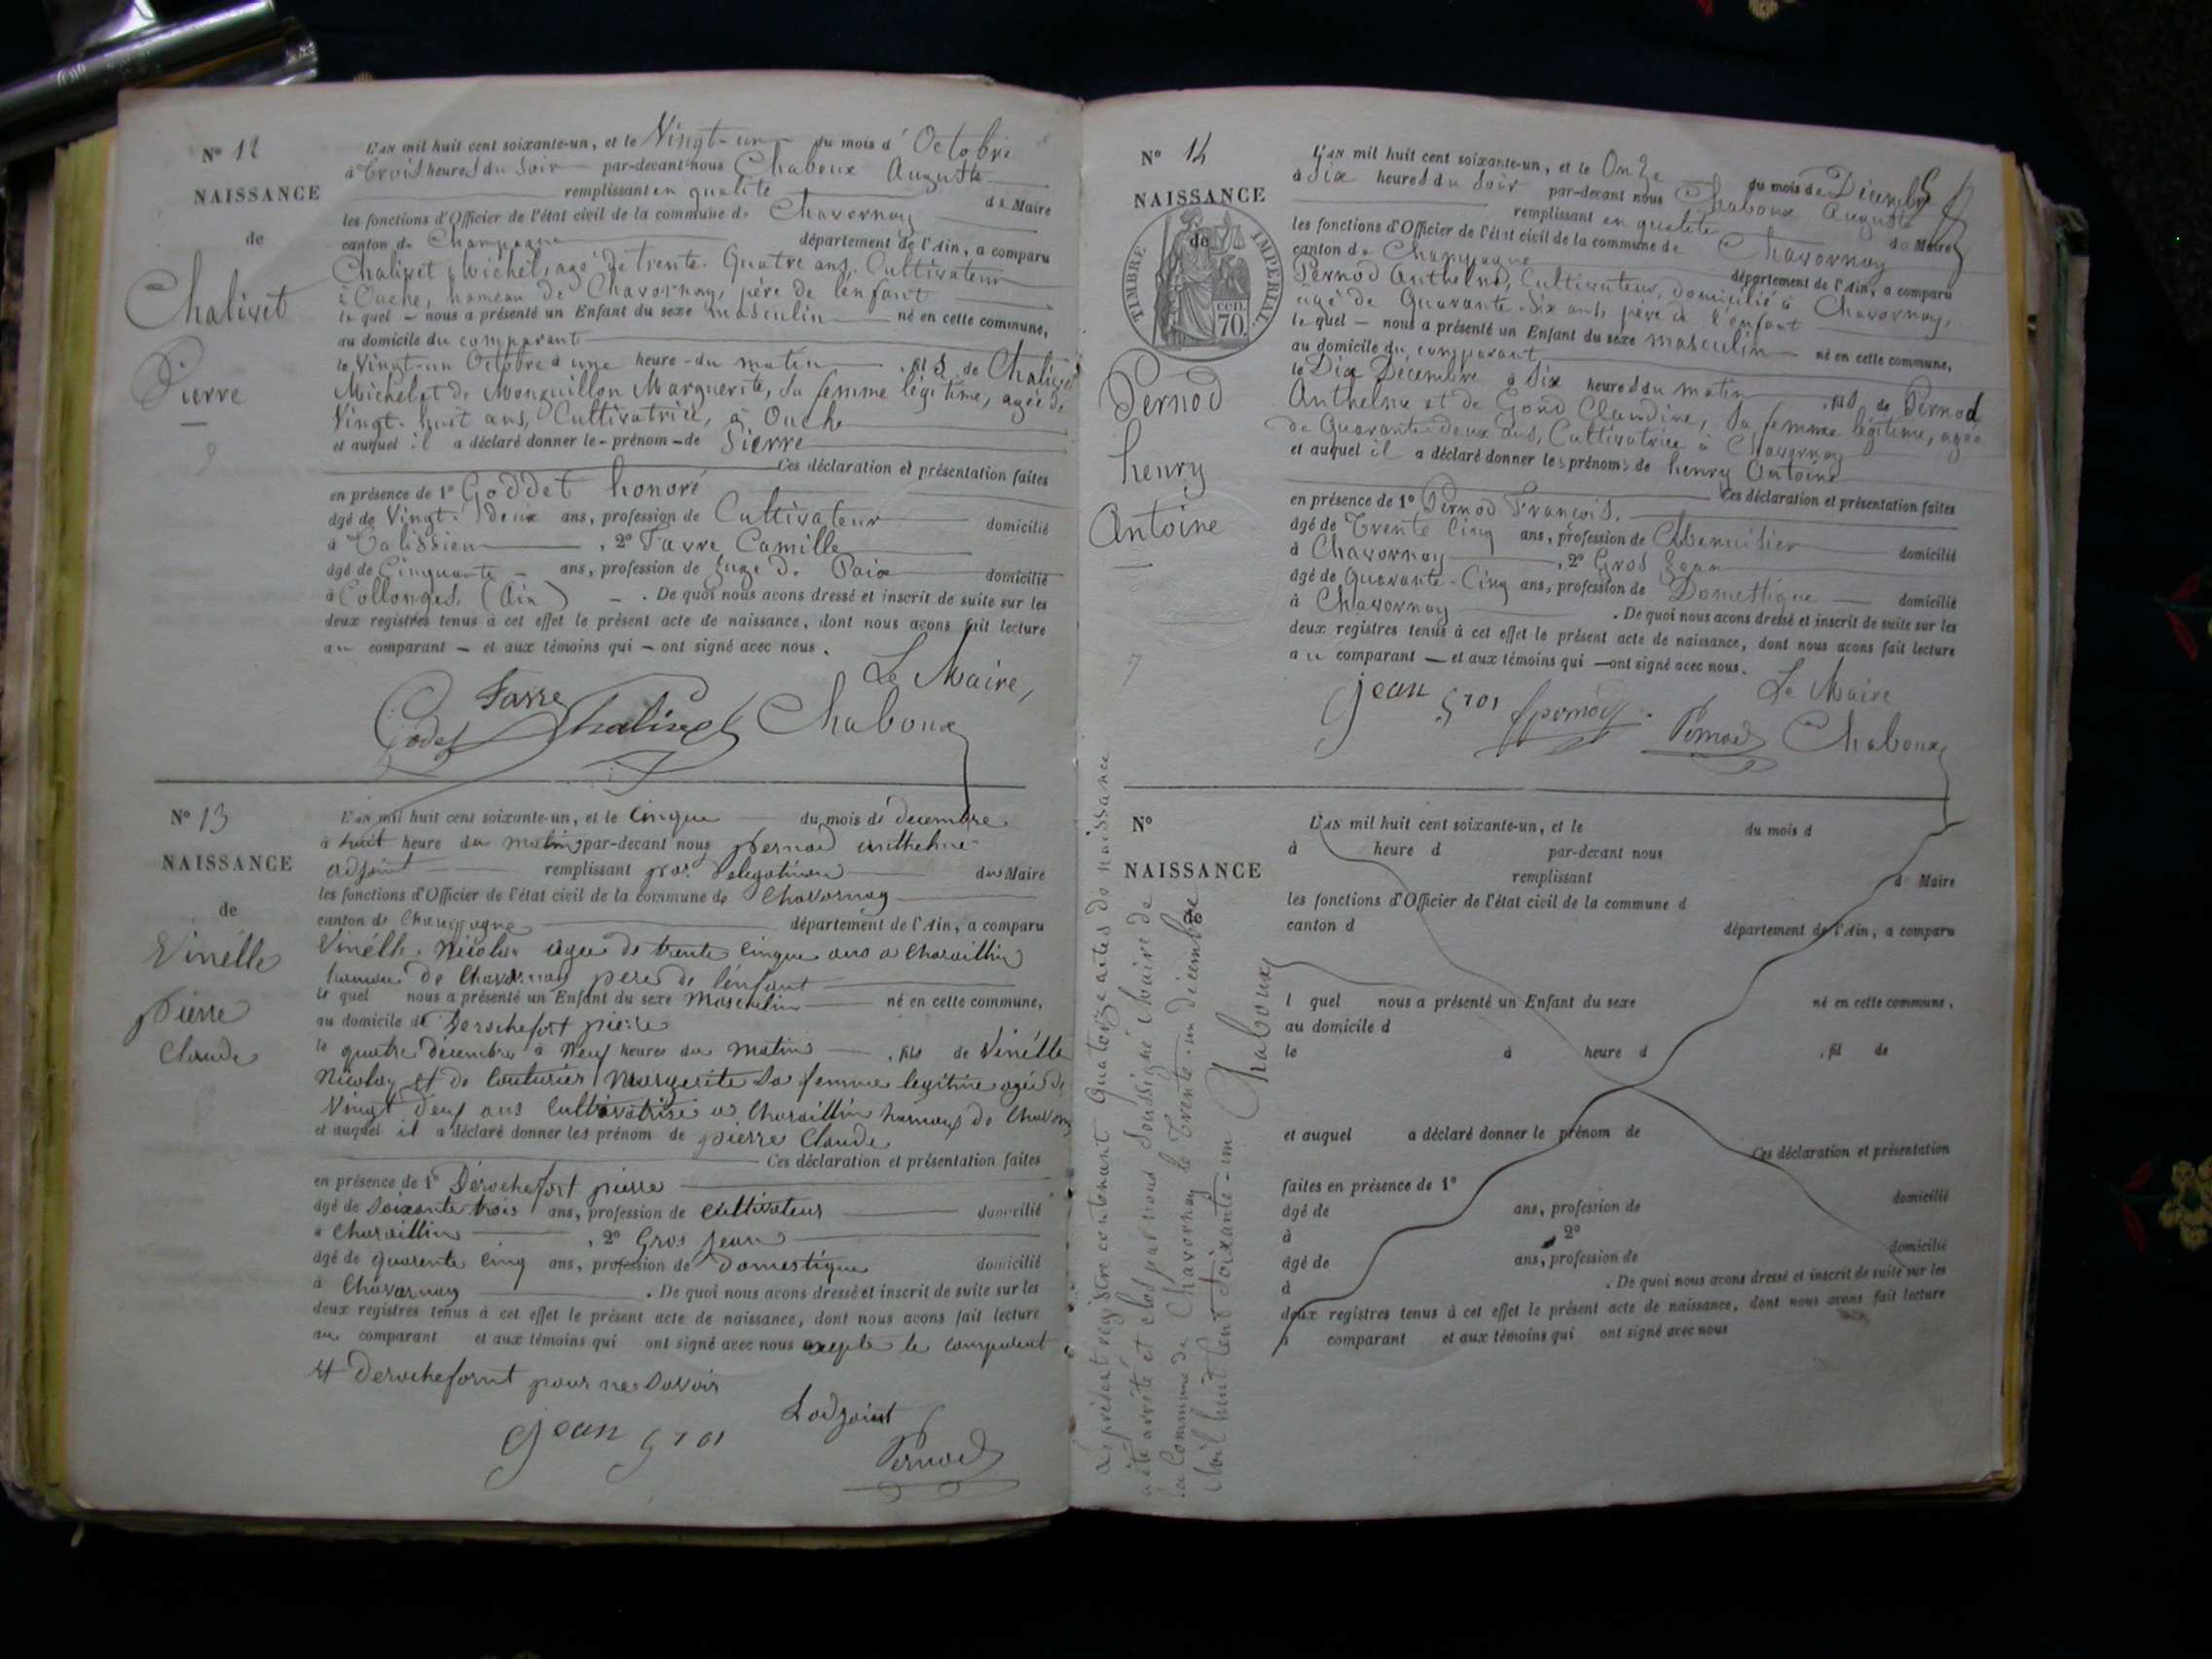 N° 12
NAISSANCE
de
Chalivet
Pierre
L'AN mil huit cent soixante-un, et le Vingt-un du mois d'Octobre
à trois heures du Soir par-devant nous Chaboux Auguste
remplissant en qualité de Maire
les fonctions d'Officier de l'état civil de la commune de Chavornay
canton de Champagne département de l'Ain, a comparu
Chalivet Michel, agé de trente-Quatre ans, Cultivateur
à Ouche, hameau de Chavornay, père de l'enfant
lequel – nous a présenté un Enfant du sexe masculin né en cette commune,
au domicile du comparant
le Vingt-un Octobre à une heure du matin, fils de Chalivet
Michel et de Monguillon Marguerite, Sa femme légitime, agée de
Vingt-huit ans, Cultivatrice, à Ouche
et auquel il a déclaré donner le prénom de Pierre
Ces déclaration et présentation faites
en présence de 1° Goddet honoré
âgé de Vingt-deux ans, profession de Cultivateur domicilié
à Talissieu, 2° Favre Camille
âgé de Cinquante ans, profession de Juge de Paix domicilié
à Collonges (Ain). De quoi nous avons dressé et inscrit de suite sur les
deux registres tenus à cet effet le présent acte de naissance, dont nous avons fait lecture
au comparant – et aux témoins qui – ont signé avec nous.
Le Maire,
Godet Favre Chalivet Chaboux
N° 13
NAISSANCE
de
Vinélle
pierre
Claude
L'AN mil huit cent soixante-un, et le Cinque du mois de decembre
à huit heure du matin par-devant nous pernod anthelme
adjoint remplissant par delegation du Maire
les fonctions d'Officier de l'état civil de la commune de Chavornay
canton de Champagne département de l'Ain, a comparu
Vinélle Nicolas agée de trente Cinque ans a Charaillin
hameau de Chavornay pere de l'enfant
le quel nous a présenté un Enfant du sexe Masculin né en cette commune,
au domicile de Derochefort pierre
le quatre décembre à Neuf heures du Matin, fils de Vinélle
Nicolas et de Couturier Margerite Sa femme legitime agée de
Vingt Neuf ans Cultivatrise a Charaillin hameau de Chavorn
et auquel il a déclaré donner les prénom de pierre Claude
Ces déclaration et présentation faites
en présence de 1° Dérochefort pierre
âgé de Soixante trois ans, profession de Cultivateur domicilié
a Charaillin, 2° Gros Jean
âgé de quarente Cinq ans, profession de Domestique domicilié
à Chavornay. De quoi nous avons dressé et inscrit de suite sur les
deux registres tenus à cet effet le présent acte de naissance, dont nous avons fait lecture
au comparant et aux témoins qui ont signé avec nous exepte le comparent
et Derochefornt pour ne Savoir
Ladjoint
jean gros Pernod
N° 14
NAISSANCE
de
TIMBRE IMPERIAL
70 cen
Pernod
henry
Antoine
L'AN mil huit cent soixante-un, et le Onze du mois de Décembre
à Six heures du Soir par-devant nous Chaboux Auguste
remplissant en qualité de Maire
les fonctions d'Officier de l'état civil de la commune de Chavornay
canton de Champagne département de l'Ain, a comparu
Pernod Anthelme, Cultivateur, domicilié à Chavornay,
âgé de Quarante-Six ans, père de l'enfant
lequel – nous a présenté un Enfant du sexe masculin né en cette commune,
au domicile du comparant
le Dix Décembre à Six heures du matin, fils de Pernod
Anthelme et de Gond Claudine, Sa femme légitime, agée
de Quarante-deux ans, Cultivatrice à Chavornay
et auquel il a déclaré donner les prénoms de henry Antoine
Ces déclaration et présentation faites
en présence de 1° Pernod François,
âgé de Trente Cinq ans, profession de Menuisier domicilié
à Chavornay, 2° Gros Jean
âgé de Quarante-Cinq ans, profession de Domestique domicilié
à Chavornay. De quoi nous avons dressé et inscrit de suite sur les
deux registres tenus à cet effet le présent acte de naissance, dont nous avons fait lecture
au comparant – et aux témoins qui – ont signé avec nous.
Le Maire
jean gros fpernod Pernod Chaboux
N°
NAISSANCE
L'AN mil huit cent soixante-un, et le du mois d
à heure d par-devant nous
remplissant d Maire
les fonctions d'Officier de l'état civil de la commune d
canton d département de l'Ain, a comparu
l quel nous a présenté un Enfant du sexe né en cette commune,
au domicile d
le à heure d , fil de
et auquel a déclaré donner le prénom de
Ces déclaration et présentation
faites en présence de 1°
âgé de ans, profession de domicilié
à , 2°
âgé de ans, profession de domicilié
à . De quoi nous avons dressé et inscrit de suite sur les
deux registres tenus à cet effet le présent acte de naissance, dont nous avons fait lecture
a comparant et aux témoins qui ont signé avec nous
Le présent registre contenant Quatorze actes de naissance
a été arrêté et clos par nous Soussigné Maire de
la Commune de Chavornay le Trente-un décembre
Mil huit Cent Soixante-un
Chaboux